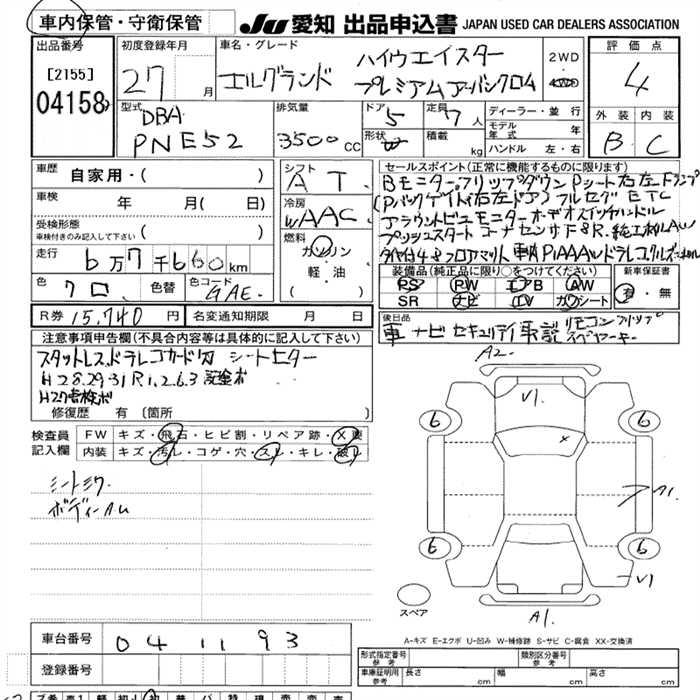 車内保管・守衛保管
JU 愛知 出品申込書 JAPAN USED CAR DEALERS ASSOCIATION
出品番号
[2155]
04158
初度登録年月
27 月
車名・グレード
エルグランド
ハイウェイスター
プレミアムアーバンクロム
2WD
4WD
評価点
4
外装 内装
B C
型式
DBA
PNE52
排気量
3500 CC
ドア
5
形状
定員
7 人
積載
kg
ディーラー・並行
モデル年式 年
ハンドル 左・右
車歴
自家用・( )
車検
年 月( 日)
受検形態
車検付きのみ記入して下さい ( )
走行
6万7千660km
色
クロ
色替
色コード
GAE
シフト
AT
冷房
WAAC
燃料
ガソリン
軽・油
セールスポイント(正常に機能するものに限ります)
Bモニター.フリップダウン Pシート右左 Fランプ
(Pバックゲート(右左ドア) フルセグ ETC
アラウンドビューモニター オーディオスイッチハンドル
プッシュスタート コーナーセンサF8R. 純正
装備品(純正品に限り○をつけてください)
PS PW エアB AW
SR ナビ TV カワシート
新車保証書
有・無
R券 15,740 円
名変通知期限 月 日
後日品
ナビ セキュリティ 取説 リモコン フリップ
スペヤーキー
注意事項申告欄(不具合内容等は具体的に記入して下さい)
スタットレス.ドラレコカード シートヒーター
H28.29.31 R1.2.6.3
H27
修復歴 有 (箇所 )
検査員
記入欄
FW キズ・飛石・ヒビ割・リペア跡・X要
内装 キズ・汚レ・コゲ・穴・スレ・キレ・破レ
シートシワ
ボディーAU
A2
V1
X
6
6
6
6
A1
V1
A1.
スペア
A-キズ E-エクボ U-凹み W-補修跡 S-サビ C-腐食 XX-交換済
車台番号
0411193
登録番号
形式指定番号
参考
類別区分番号
参考
車庫証明用
参考
長さ cm
幅 cm
高さ cm